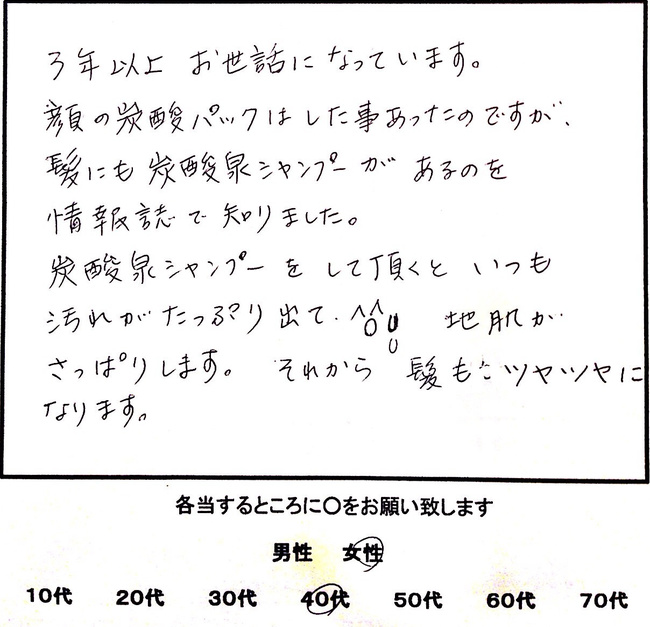 3年以上 お世話になっています。
顔の炭酸パックはした事あったのですが、
髪にも炭酸泉シャンプーが あるのを
情報誌で知りました。
炭酸泉シャンプーをして頂くと いつも
汚れがたっぷり出て 地肌が
さっぱりします。 それから 髪も ツヤツヤに
なります。
各当するところに〇をお願い致します
男性 女性
10代 20代 30代 40代 50代 60代 70代